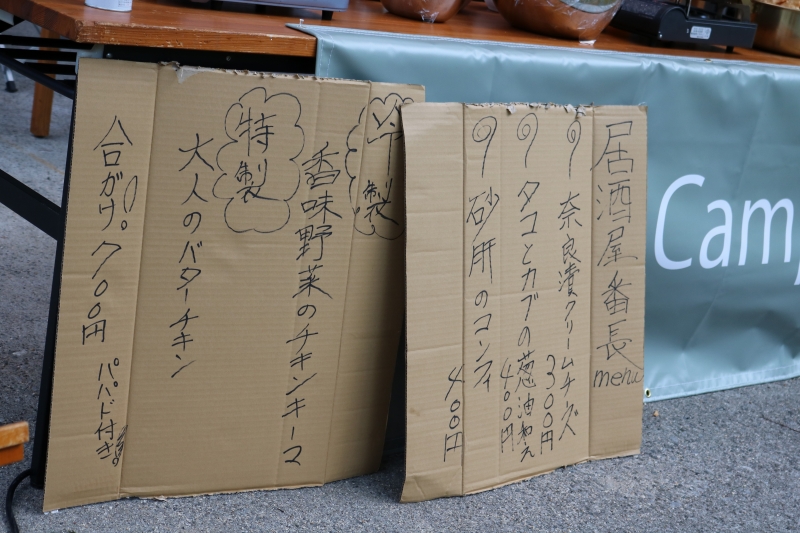 居酒屋番長
menu
奈良漬クリームチーズ
300円
タコとカブの葱油和え
400円
砂肝のコンフィ
400円
特製
香味野菜のチキンキーマ
特製
大人のバターチキン
合がけ 700円 パパド付き。
Cam